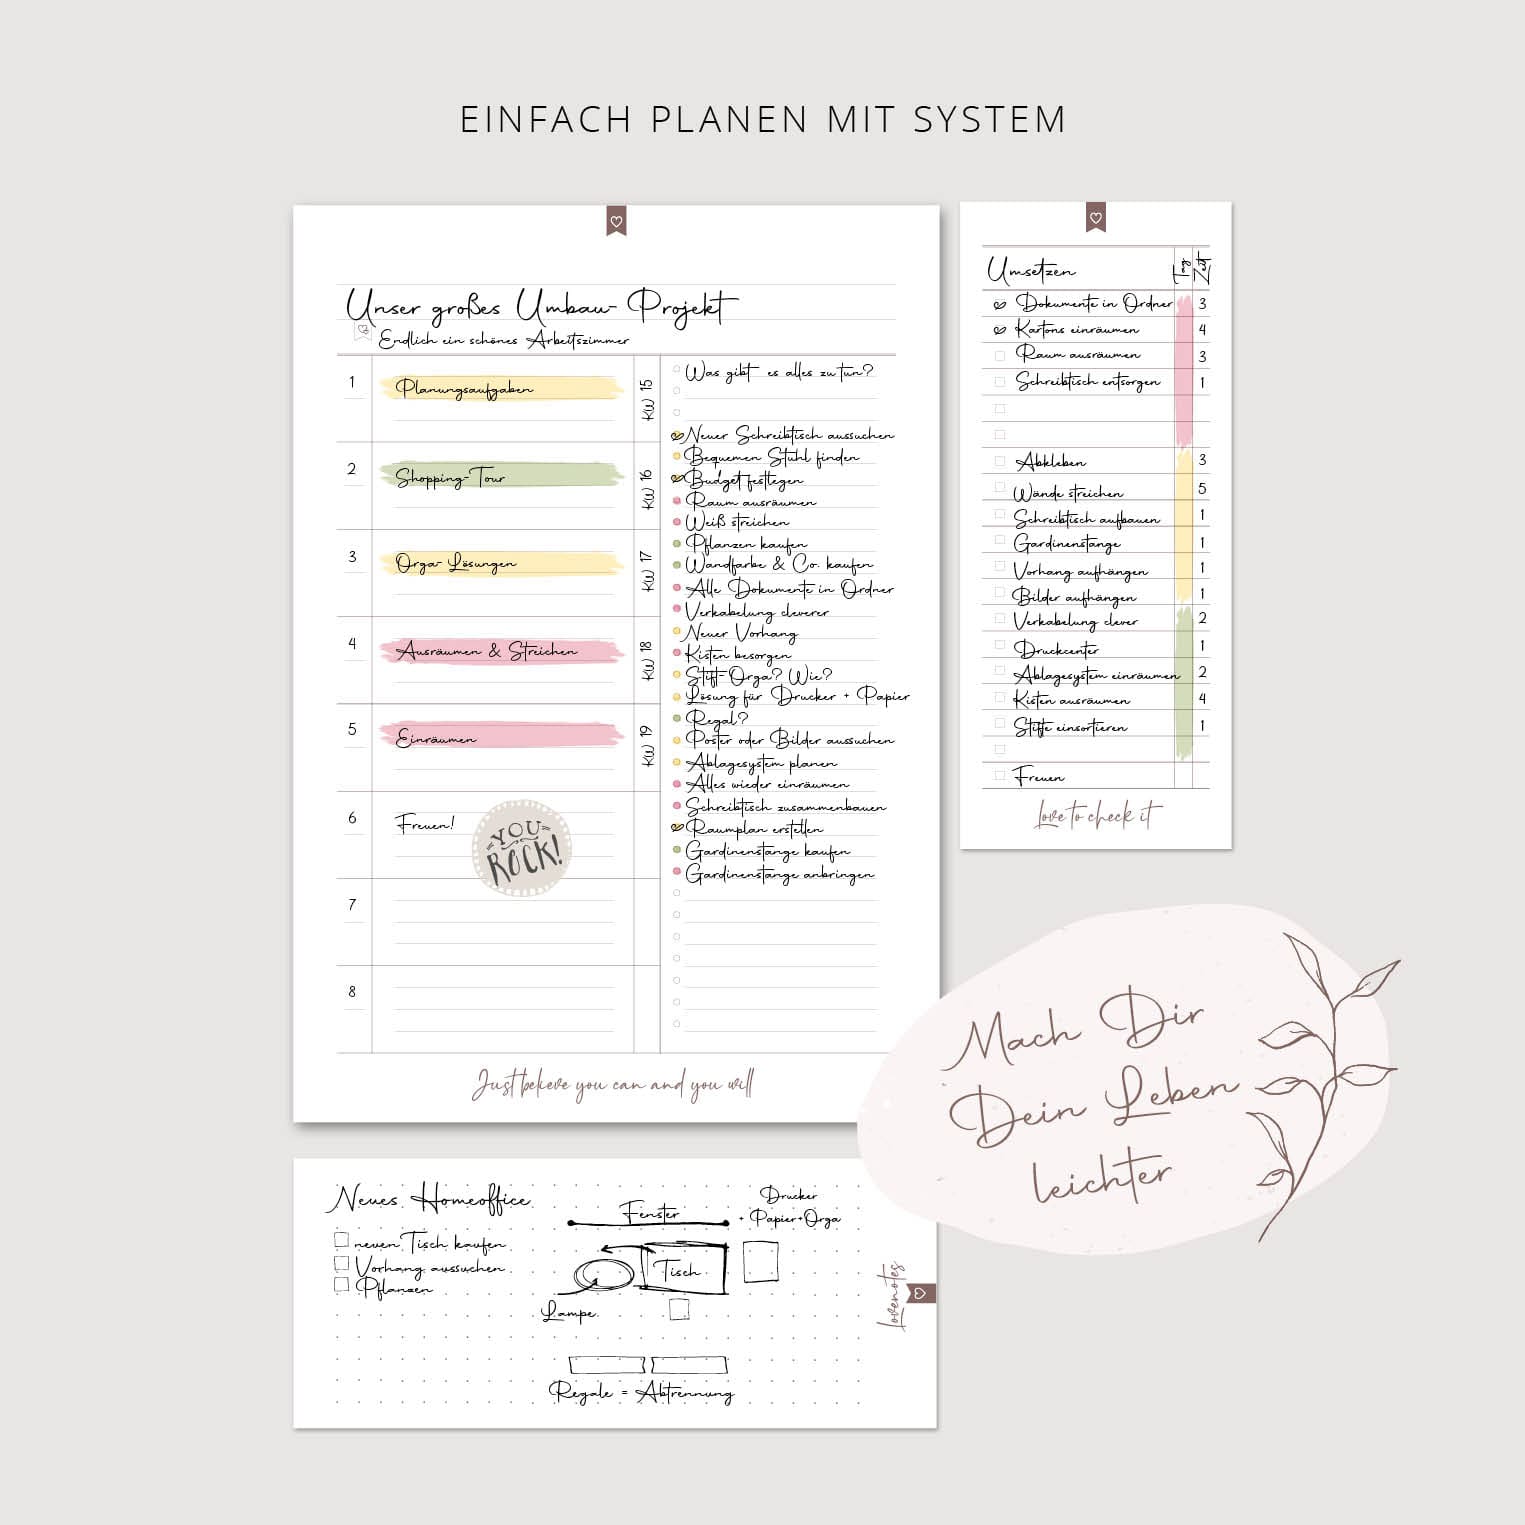 EINFACH PLANEN MIT SYSTEM
Unser großes Umbau-Projekt
Endlich ein schönes Arbeitszimmer
1
Planungsaufgaben
KW 15
2
Shopping-Tour
KW 16
3
Orga-Lösungen
KW 17
4
Ausräumen & Streichen
KW 18
5
Einräumen
KW 19
6
Freuen!
YOU
ROCK!
7
8
Was gibt es alles zu tun?
Neuer Schreibtisch aussuchen
Bequemen Stuhl finden
Budget festlegen
Raum ausräumen
Weiß streichen
Pflanzen kaufen
Wandfarbe & Co. kaufen
Alle Dokumente in Ordner
Verkabelung cleverer
Neuer Vorhang
Kisten besorgen
Stift-Orga? Wie?
Lösung für Drucker + Papier
Regal?
Poster oder Bilder aussuchen
Ablagesystem planen
Alles wieder einräumen
Schreibtisch zusammenbauen
Raumplan erstellen
Gardinenstange kaufen
Gardinenstange anbringen
Just believe you can and you will
Umsetzen Tag Zeit
Dokumente in Ordner 3
Kartons einräumen 4
Raum ausräumen 3
Schreibtisch entsorgen 1
Abkleben 3
Wände streichen 5
Schreibtisch aufbauen 1
Gardinenstange 1
Vorhang aufhängen 1
Bilder aufhängen 1
Verkabelung clever 2
Druckcenter 1
Ablagesystem einräumen 2
Kisten ausräumen 4
Stifte einsortieren 1
Freuen
Love to check it
Mach Dir
Dein Leben
leichter
Neues Homeoffice
neuen Tisch kaufen
Vorhang aussuchen
Pflanzen
Fenster
Drucker
+ Papier+Orga
Tisch
Lampe
Regale = Abtrennung
Lovenotes